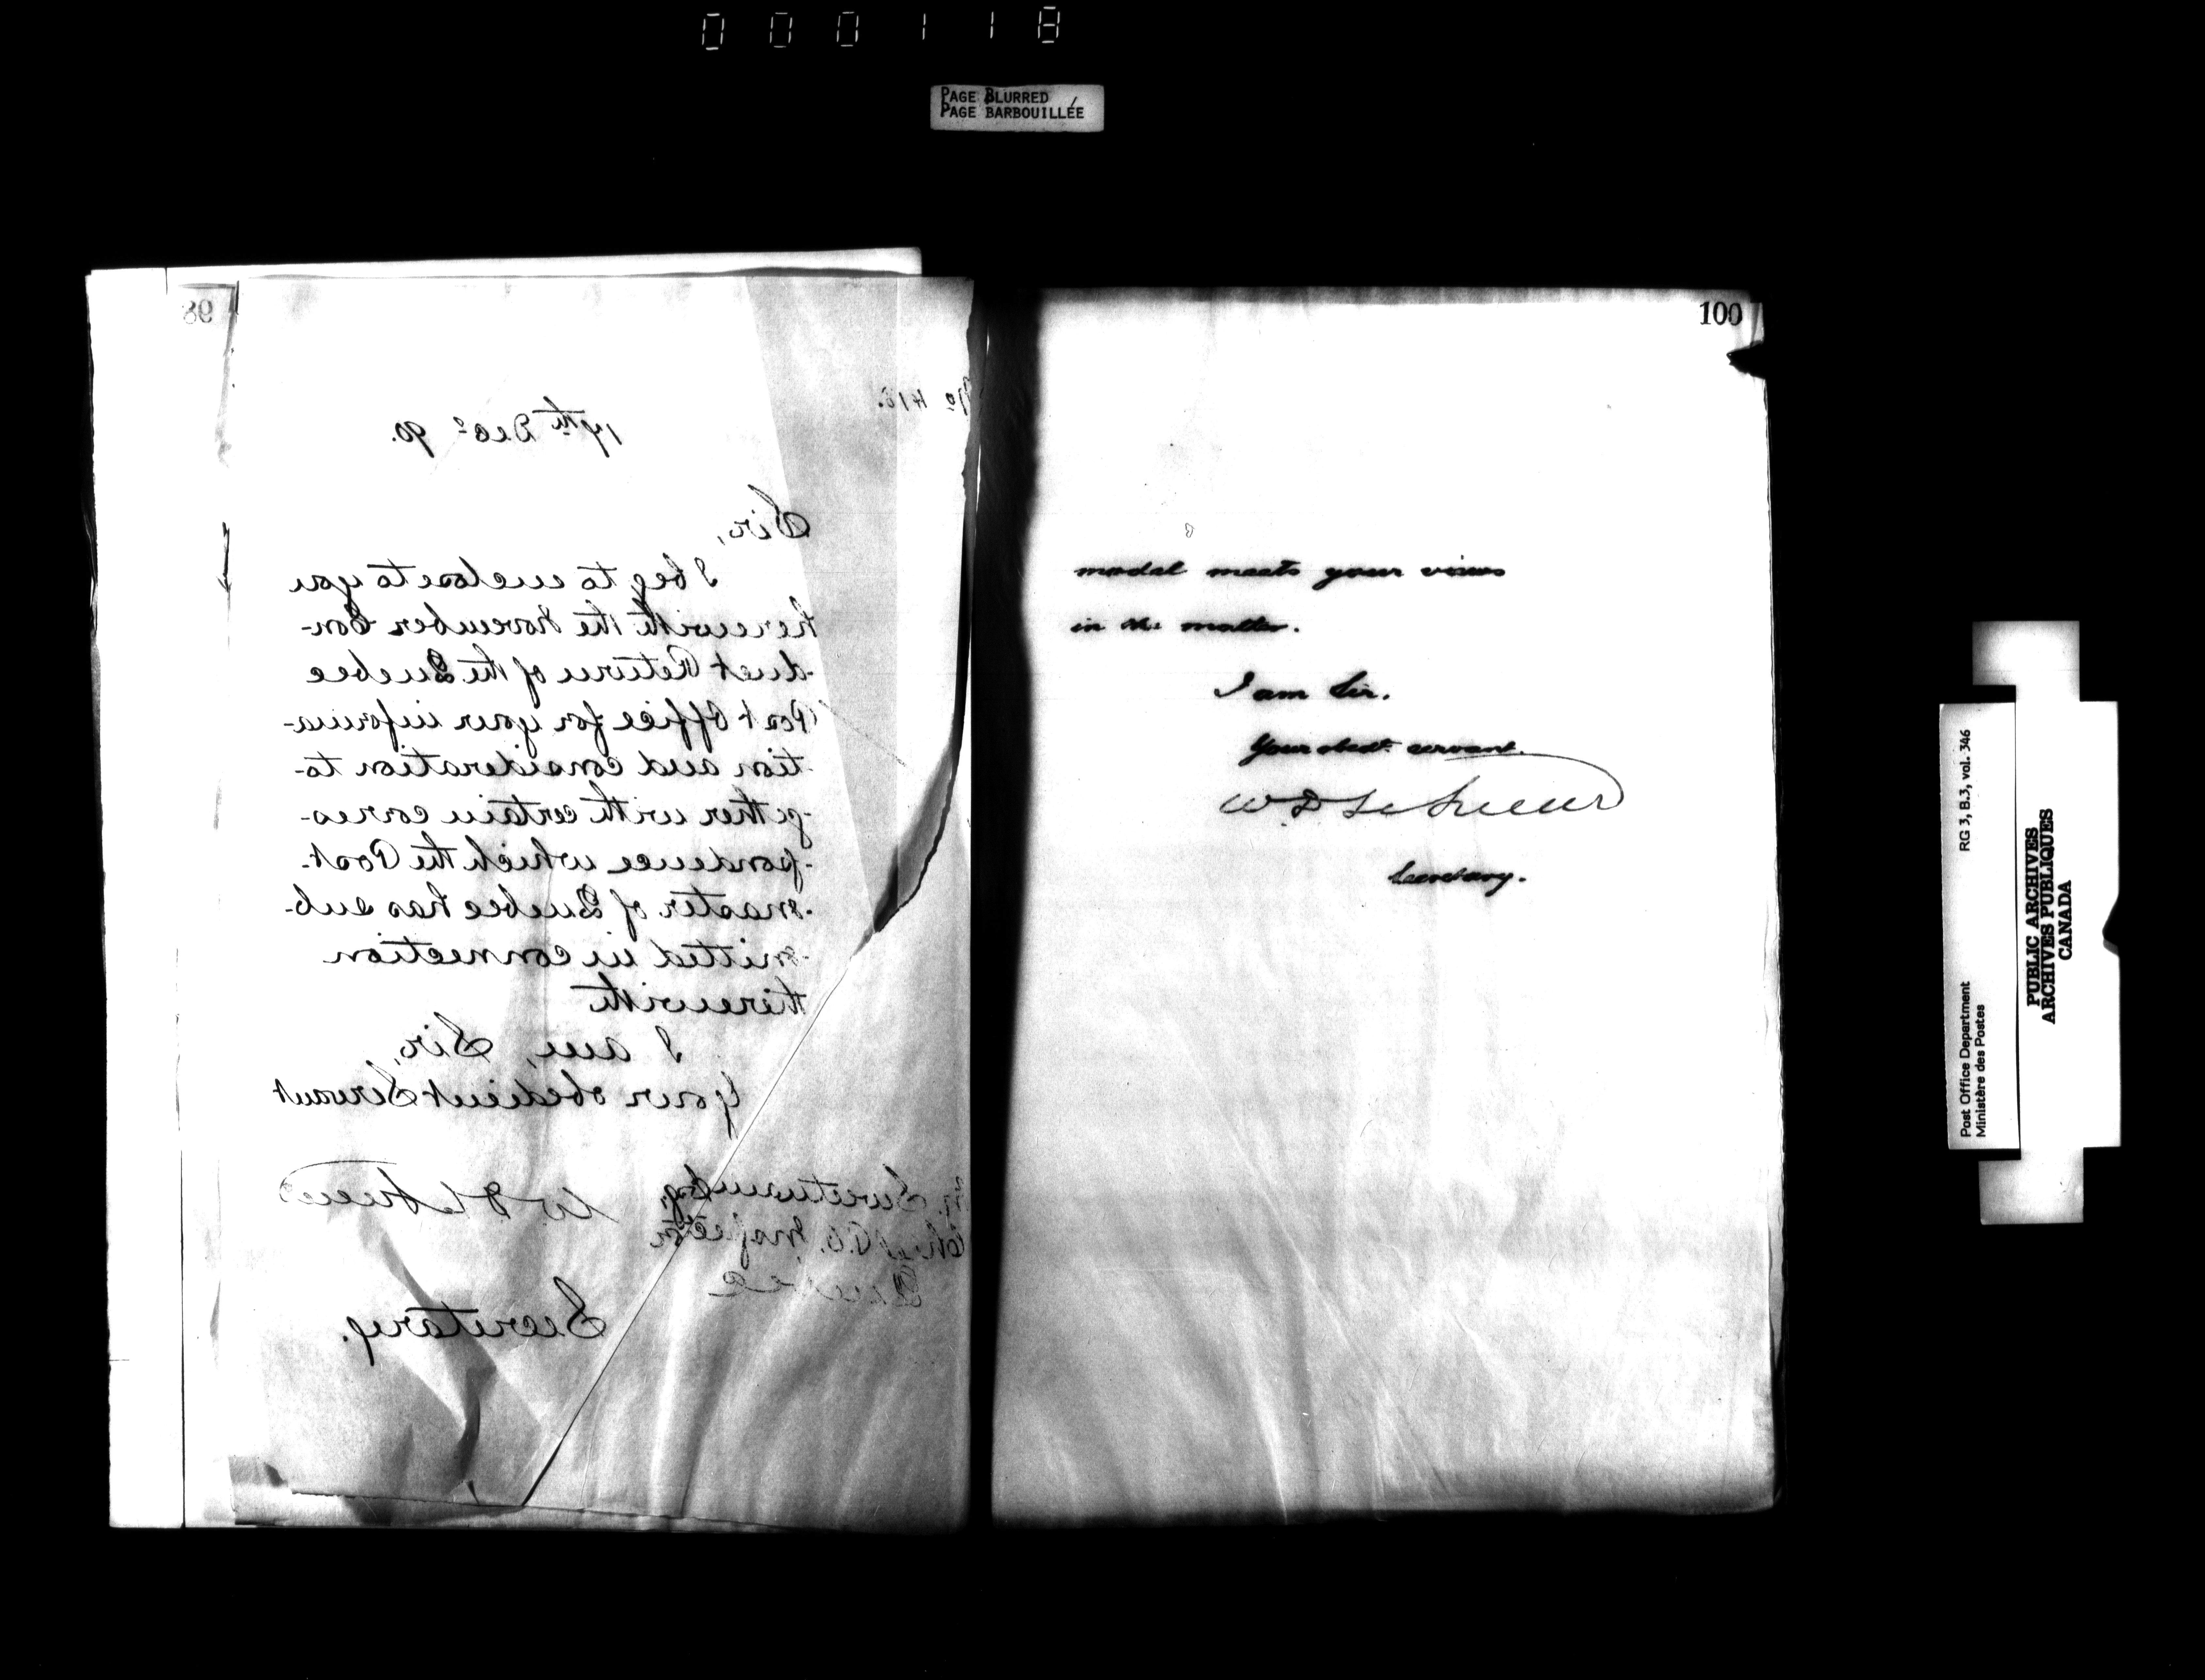 000118
PAGE BLURRED
PAGE BARBOUILLÉE
98
No 418.
17th Decr 90.
Sir,
I beg to enclose to you
herewith the November Con-
-duct Return of the Quebec
Post Office for your informa-
-tion and consideration to-
-gether with certain corres-
-pondence which the Post-
-master of Quebec has sub-
-mitted in connection
therewith
I am, Sir,
Your obedient Servant
W. D. LeSueur
Secretary.
Sweetnam Esq,
Chief P.O. Inspector
100
model meets your views
in the matter.
I am Sir.
Your obedt. servant.
W. D. LeSueur
Secretary.
RG 3, B.3, vol. 346
Post Office Department
Ministère des Postes
PUBLIC ARCHIVES
ARCHIVES PUBLIQUES
CANADA